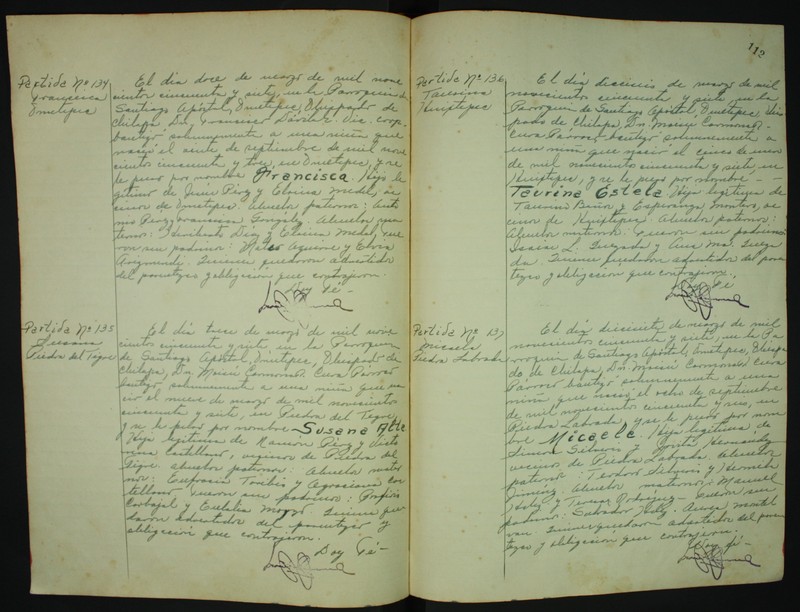 Partida Nº 134
Francisca
Ometepec
El día doce de marzo de mil nove
cientos cincuenta y siete, en la Parroquia de
Santiago Apóstol, Ometepec, Obispado de
Chilapa, Dn. Francisco Vic. coop.
bautizó solemnemente a una niña que
nació el siete de septiembre de mil nove
cientos cincuenta y tres, en Ometepec, y se
le puso por nombre Francisca. Hija le
gítima de Pérez y Elvira Medel, ve
cinos de Ometepec. Abuelos paternos:
Pérez, Francisca González. Abuelos ma
ternos: Díaz y Elvira Medel, fue
ron sus padrinos: Mateo Aguirre y Elvia
Arizmendi. quedaron advertidos
del parentezco y obligación que contrajeron.
Doy Fé-
Partida Nº 135
Susana
Piedra del Tigre
El día trece de marzo de mil nove
cientos cincuenta y siete, en la Parroquia
de Santiago Apóstol, Ometepec, Obispado de
Chilapa, Dn. Moisés Carmona. Cura Párroco
bautizó, solemnemente a una niña que na
ció el nueve de marzo de mil novecientos
cincuenta y siete, en Piedra del Tigre,
y se le puso por nombre Susana
Hija legítima de Ramón Pérez y
Castellano, vecinos de Piedra del
Tigre. abuelos paternos: Abuelos mater
nos: Eufrasia Toribio y Cas
tellano, fueron sus padrinos: Porfirio
Carbajal y Eulalia que
daron advertidos del parentezco y
obligación que contrajeron.
Doy Fé-
112
Partida Nº 136
Taurina
Huixtepec
El día dieciseis de marzo de mil
novecientos cincuenta y siete, en la
Parroquia de Santiago Apóstol, Ometepec, Obis
pado de Chilapa, Dn. Moisés Carmona.-
Cura Párroco, bautizó solemnemente a
una niña que nació el cinco de
de mil novecientos cincuenta y siete, en
Huixtepec, y se le puso por nombre - -
Taurina Estela. Hija legítima de
Baños y Esperanza Montero, ve
cinos de Huixtepec. Abuelos paternos:
Abuelos maternos: Fueron sus padrinos
L. Guezada y Ana Ma. Gueza
da. quedaron advertidos del paren
tezco y obligación que contrajeron.,
Doy Fé
Partida Nº 137
Micaela
Piedra Labrada
El día diecisiete de marzo de mil
novecientos cincuenta y siete, en la Pa
rroquia de Santiago Apóstol, Ometepec, Obispa
do de Chilapa, Dn. Moisés Carmona, Cura
Párroco bautizó solemnemente a una
niña que nació el ocho de septiembre
de mil novecientos cincuenta y seis, en
Piedra Labrada, y se le puso por nom
bre Micaela. Hija legítima de
Simón Silverio y Hernández
vecinos de Piedra Labrada. Abuelos
paternos: Teodoro Silverio y
Jiménez. Abuelos maternos: Manuel
y Tomasa Rodríguez - Fueron sus
padrinos: Salvador
quedaron advertidos del paren
tezco y obligación que contrajeron.
Doy fé-